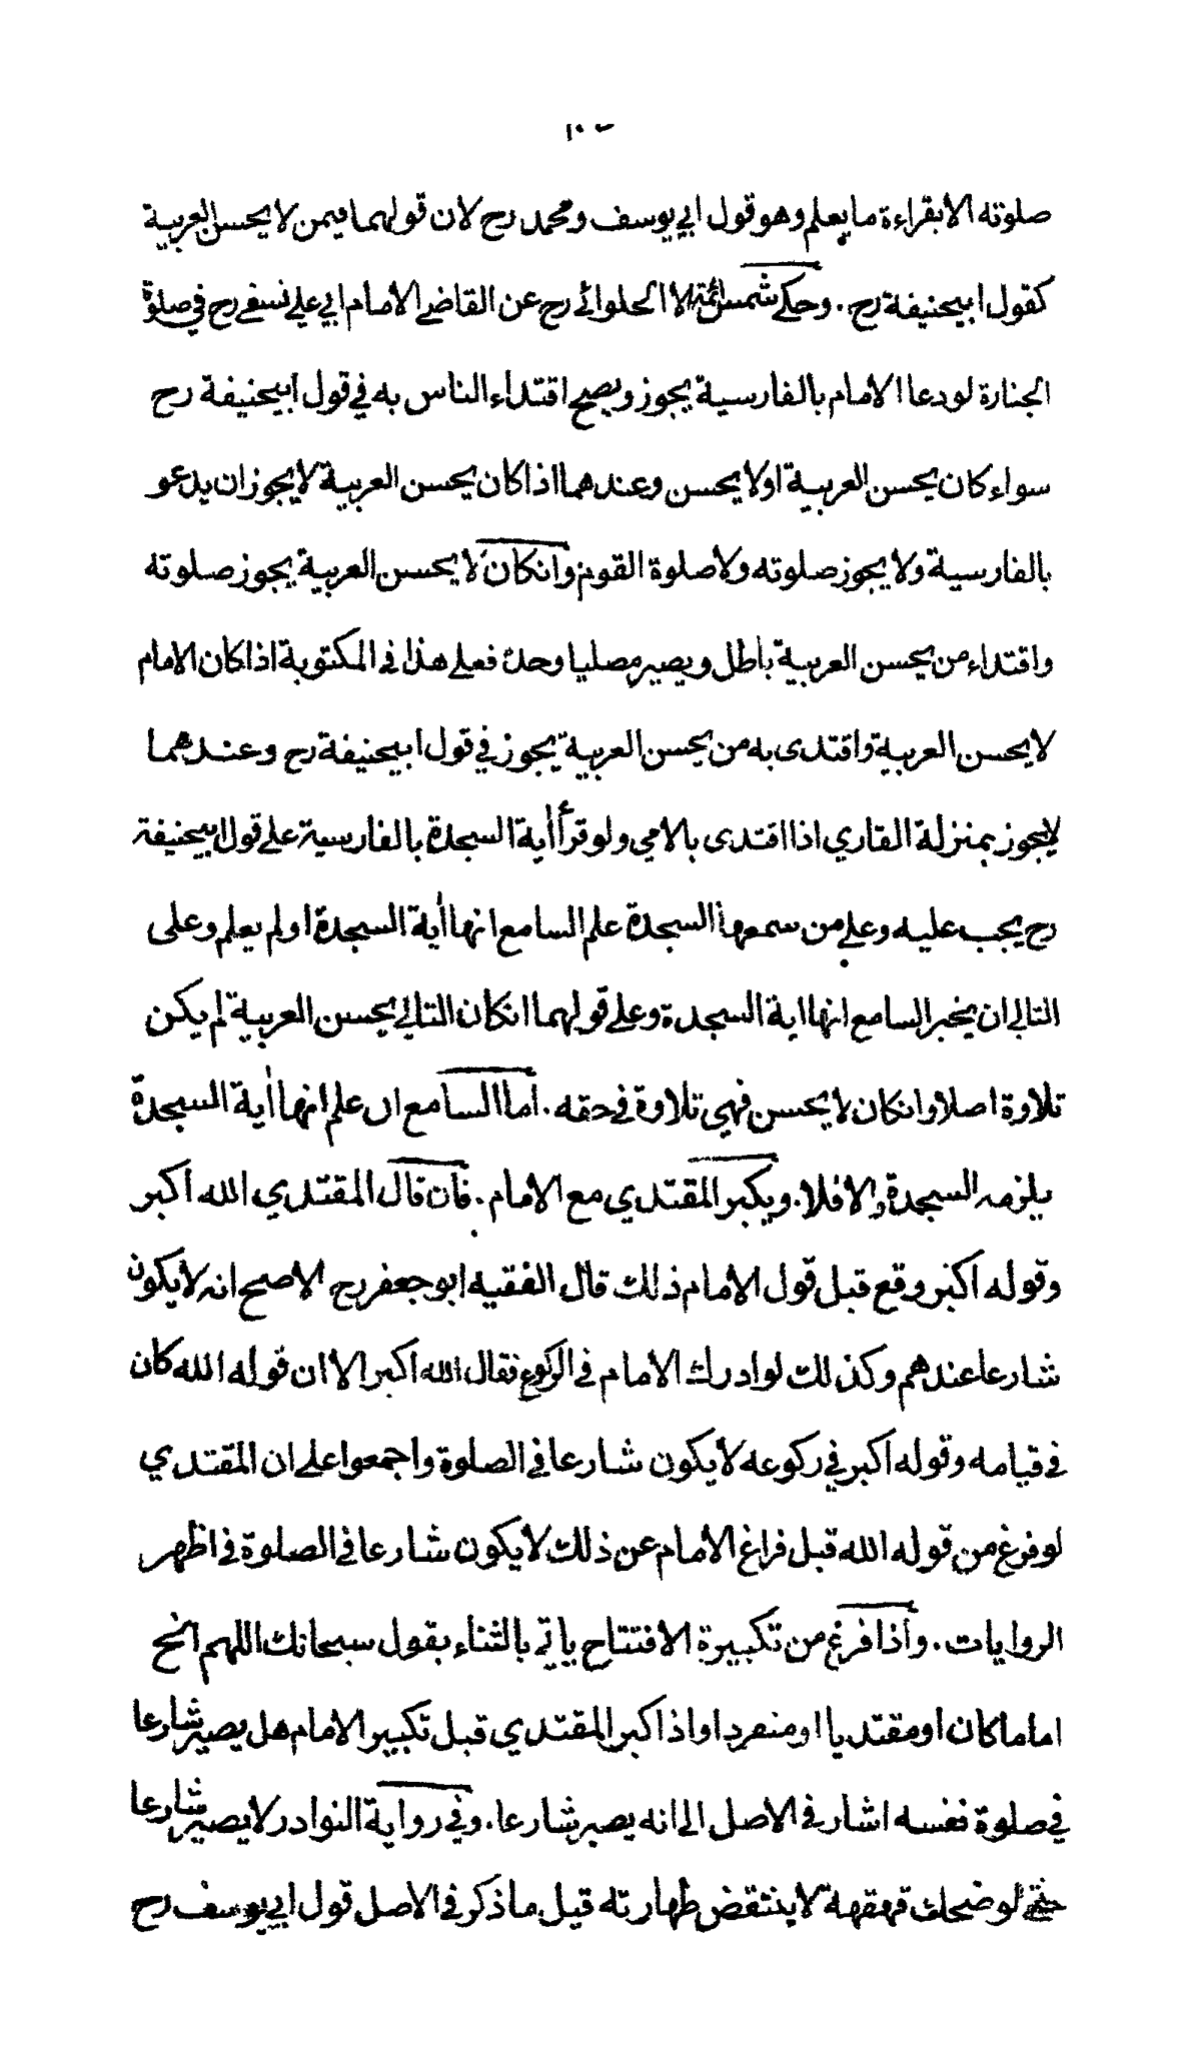 صلوته الا بقراءة ما يعلم وهو قول ابي يوسف ومحمد رح لان قولهما فيمن لا يحسن العربية
كقول ابيحنيفة رح . وحكي شمس الائمة الحلوائي رح عن القاضي الامام ابي علي نسفي رح في صلوة
الجنازة لو دعا الامام بالفارسية يجوز ويصح اقتداء الناس به في قول ابيحنيفة رح
سواء كان يحسن العربية او لا يحسن وعندهما اذا كان يحسن العربية لا يجوز ان يدعو
بالفارسية ولا يجوز صلوته ولا صلوة القوم وانكان لا يحسن العربية يجوز صلوته
واقتداء من يحسن العربية باطل ويصير مصليا وحده فعلى هذا في المكتوبة اذا كان الامام
لا يحسن العربية واقتدى به من يحسن العربية يجوز في قول ابيحنيفة رح وعندهما
لا يجوز بمنزلة القاري اذا اقتدى بالامي ولو قرأ أية السجدة بالفارسية على قول ابيحنيفة
رح يجب عليه وعلى من سمعها السجدة علم السامع انها أية السجدة او لم يعلم وعلى
التالي ان يخبر السامع انها اية السجدة وعلى قولهما انكان التالي يحسن العربية لم يكن
تلاوة اصلا وانكان لا يحسن فهي تلاوة في حقه . اما السامع ان علم انها أية السجدة
يلزمه السجدة والا فلا . ويكبر المقتدي مع الامام . فان قال المقتدي الله اكبر
وقوله اكبر وقع قبل قول الامام ذلك قال الفقيه ابو جعفر رح الاصح انه لا يكون
شارعا عندهم وكذلك لو ادرك الامام في الركوع فقال الله اكبر الا ان قوله الله كان
في قيامه وقوله اكبر في ركوعه لا يكون شارعا في الصلوة واجمعوا على ان المقتدي
لو فرغ من قوله الله قبل فراغ الامام عن ذلك لا يكون شارعا في الصلوة في اظهر
الروايات . واذا فرغ من تكبيرة الافتتاح ياتي بالثناء يقول سبحانك اللهم الخ
اماما كان او مقتديا او منفردا واذا كبر المقتدي قبل تكبير الامام هل يصير شارعا
في صلوة نفسه اشار في الاصل الى انه يصير شارعا . وفي رواية النوادر لا يصير شارعا
حتى لو ضحك قهقهة لا ينتقض طهارته قيل ما ذكر في الاصل قول ابي يوسف رح